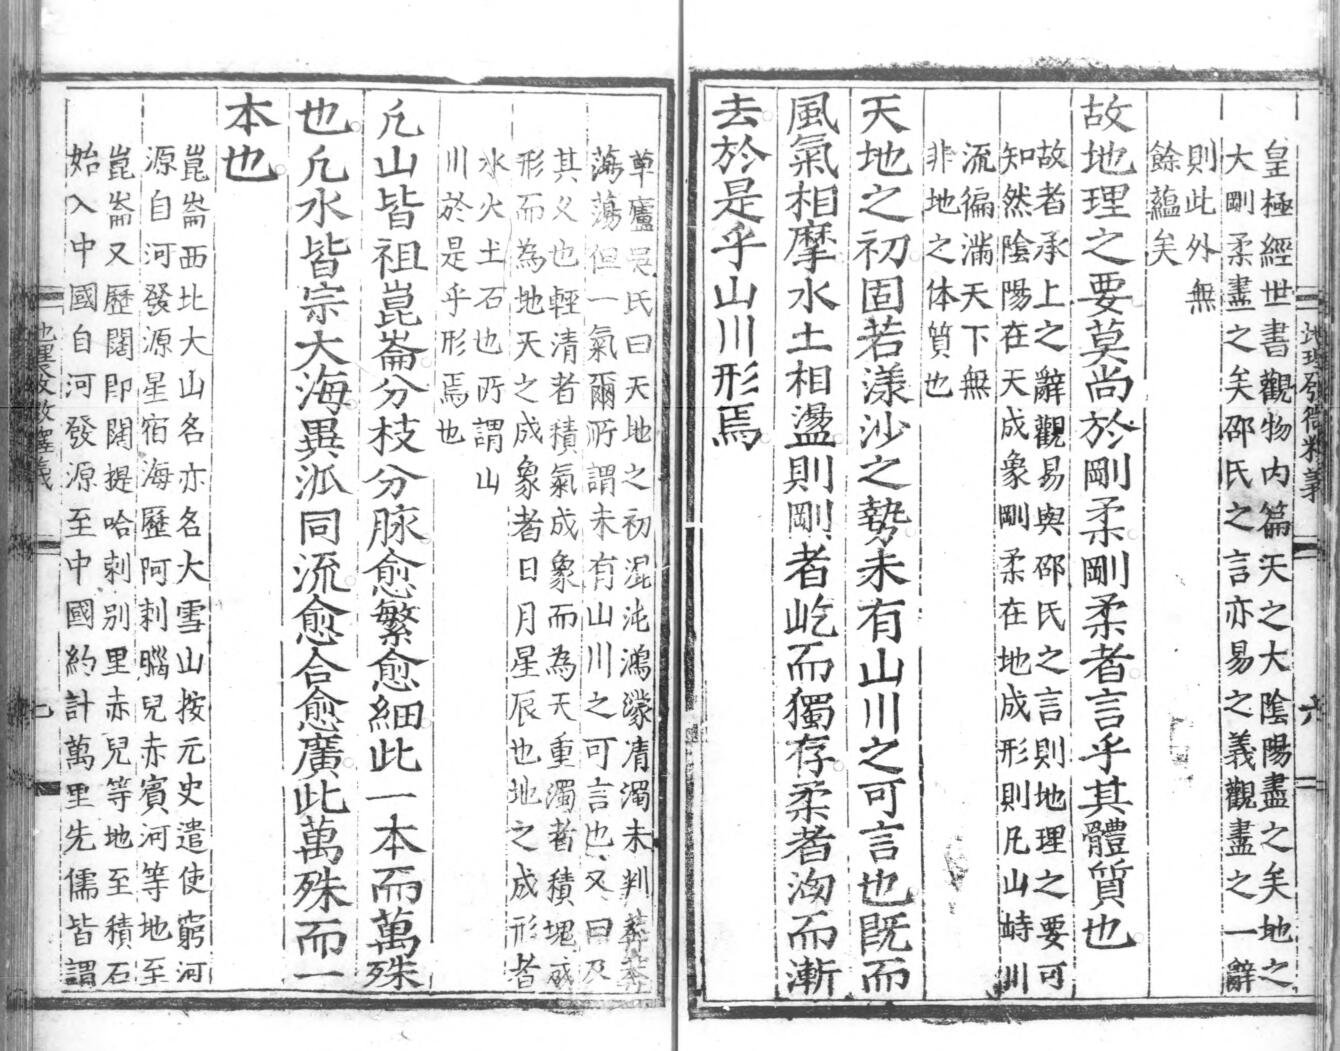 皇極經世書觀物內篇天之大陰陽盡之矣地之
大剛柔盡之矣邵氏之言亦易之義觀盡之一辭
則此外無
餘蘊矣
故地理之要莫尚於剛柔剛柔者言乎其體質也
故者承上之辭觀易與邵氏之言則地理之要可
知然陰陽在天成象剛柔在地成形則凡山峙川
流徧滿天下無
非地之体質也
天地之初固若漾沙之勢未有山川之可言也既而
風氣相摩水土相盪則剛者屹而獨存柔者沕而漸
去於是乎山川形焉
草廬吳氏曰天地之初混沌鴻濛清濁未判莽莽
蕩蕩但一氣爾所謂未有山川之可言也又曰及
其久也輕清者積氣成象而為天重濁者積塊成
形而為地天之成象者日月星辰也地之成形者
水火土石也所謂山
川於是乎形焉也
凢山皆祖崑崙分枝分脉愈繁愈細此一本而萬殊
也凢水皆宗大海異派同流愈合愈廣此萬殊而一
本也
崑崙西北大山名亦名大雪山按元史遣使窮河
源自河發源星宿海歷阿剌腦兒赤賓河等地至
崑崙又歷闊即闊提哈剌别里赤兒等地至積石
始入中國自河發源至中國約計萬里先儒皆謂